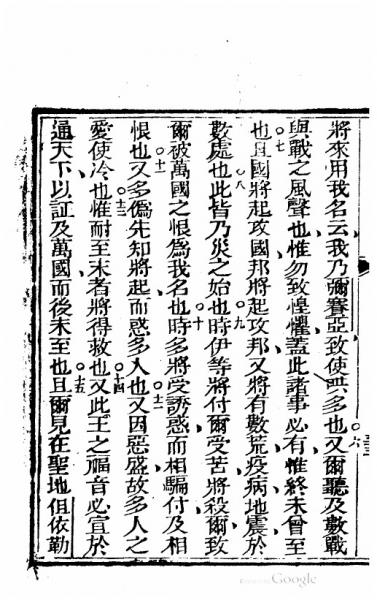 將來用我名云我乃彌賽亞致使哄多也又爾聽及數戰
與戰之風聲也惟勿致惶懼蓋此諸事必有惟終末曾至
也且國將起攻國邦將起攻邦又將有數荒疫病地震於
數處也此皆乃災之始也時伊等將付爾受苦將殺爾致
爾被萬國之恨爲我名也時多將受誘惑而相騙付及相
恨也又多僞先知將起而惑多人也又因惡盛故多人之
愛使冷也惟耐至末者將得救也又此王之福音必宣於
通天下以証及萬國而後末至也且爾見在聖地但依勒
六
七
八
九
十
十一
十二
十三
十四
十五
Google